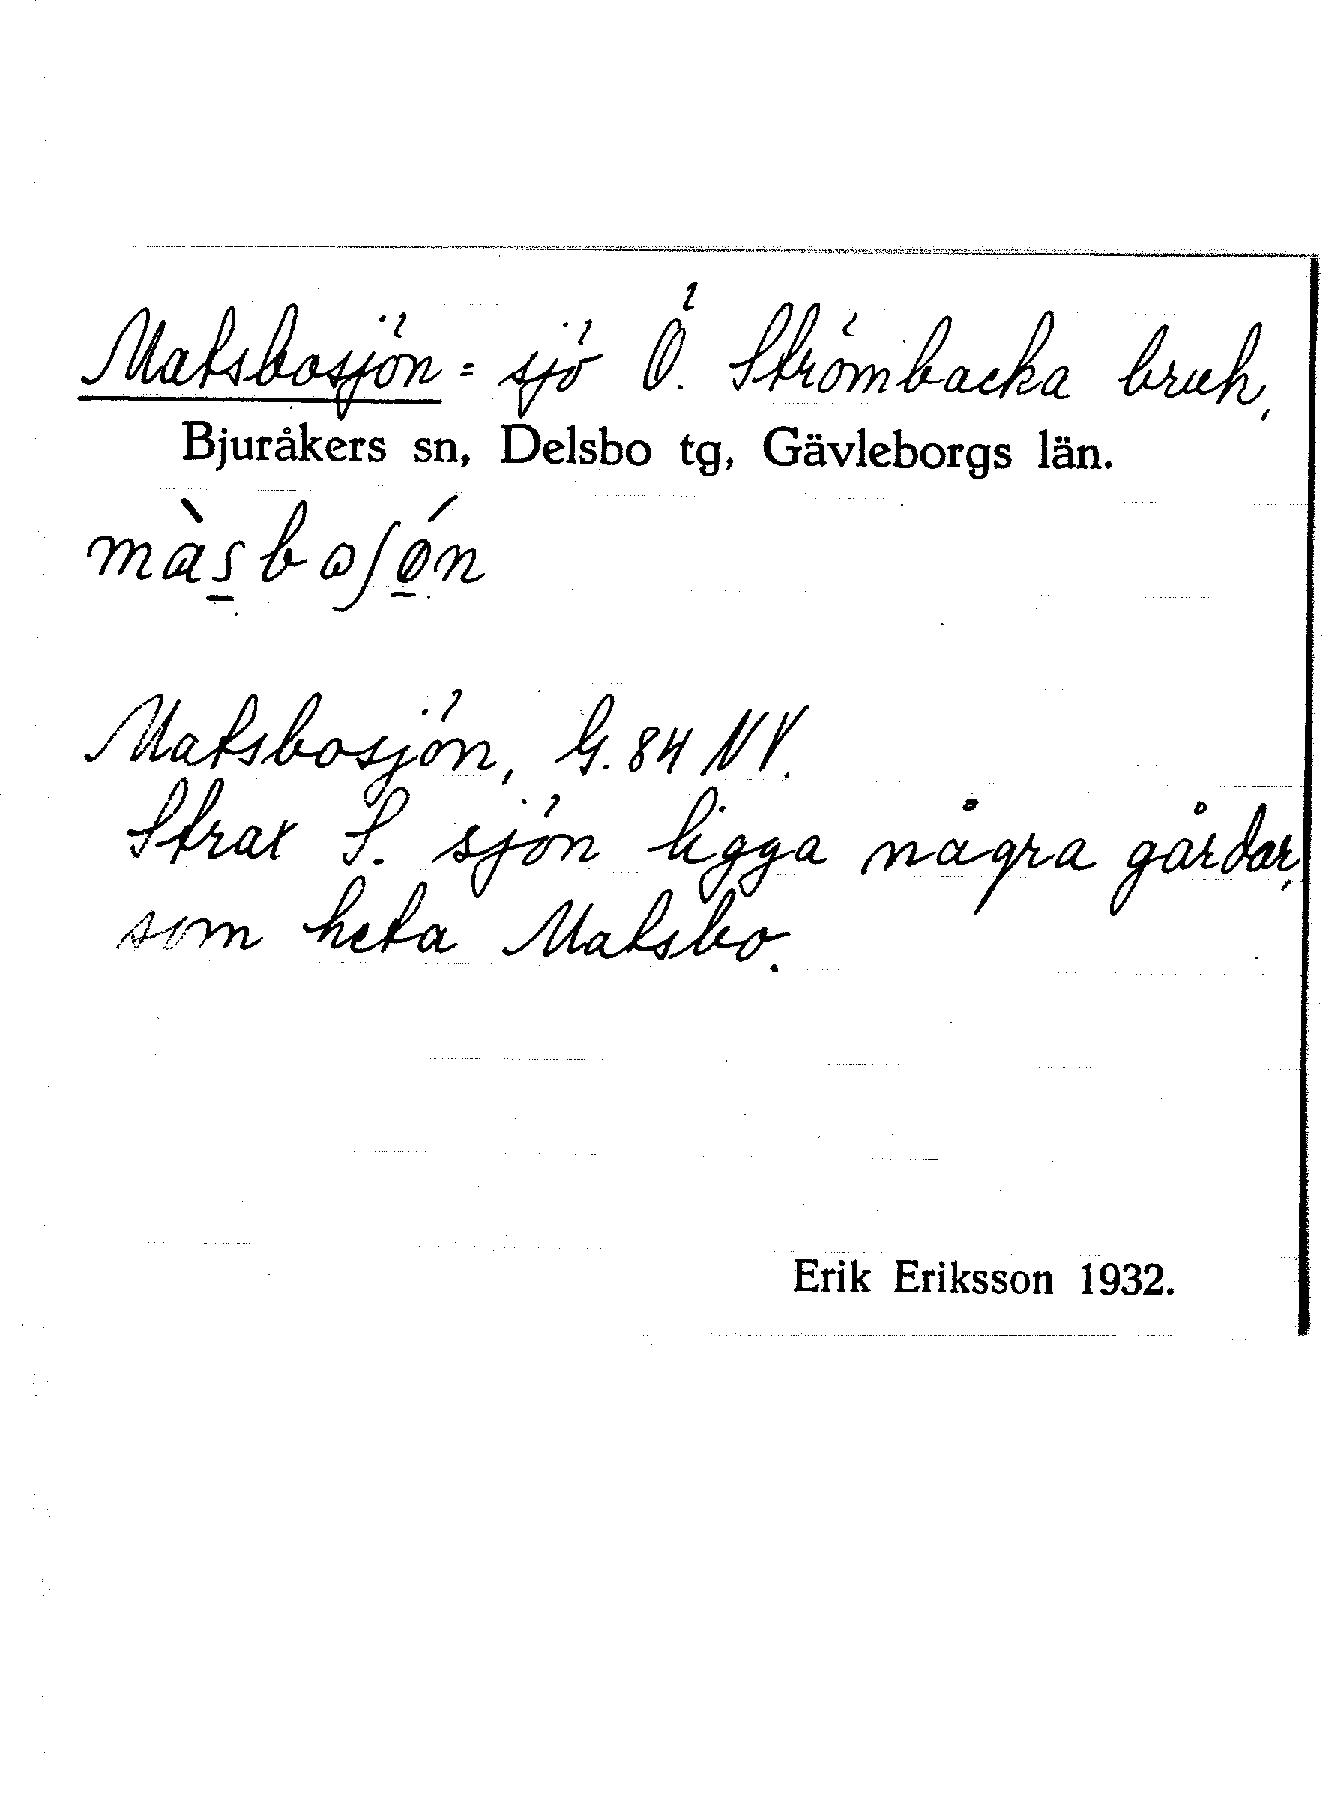 Matsbosjön = sjö Ö. Strömbacka bruk,
Bjuråkers sn, Delsbo tg, Gävleborgs län.
màs̲bɷʃǿ̲n
Matsbosjön, G. 84 NV.
Strax S. sjön ligga några gårdar,
som heta Matsbo.
Erik Eriksson 1932.